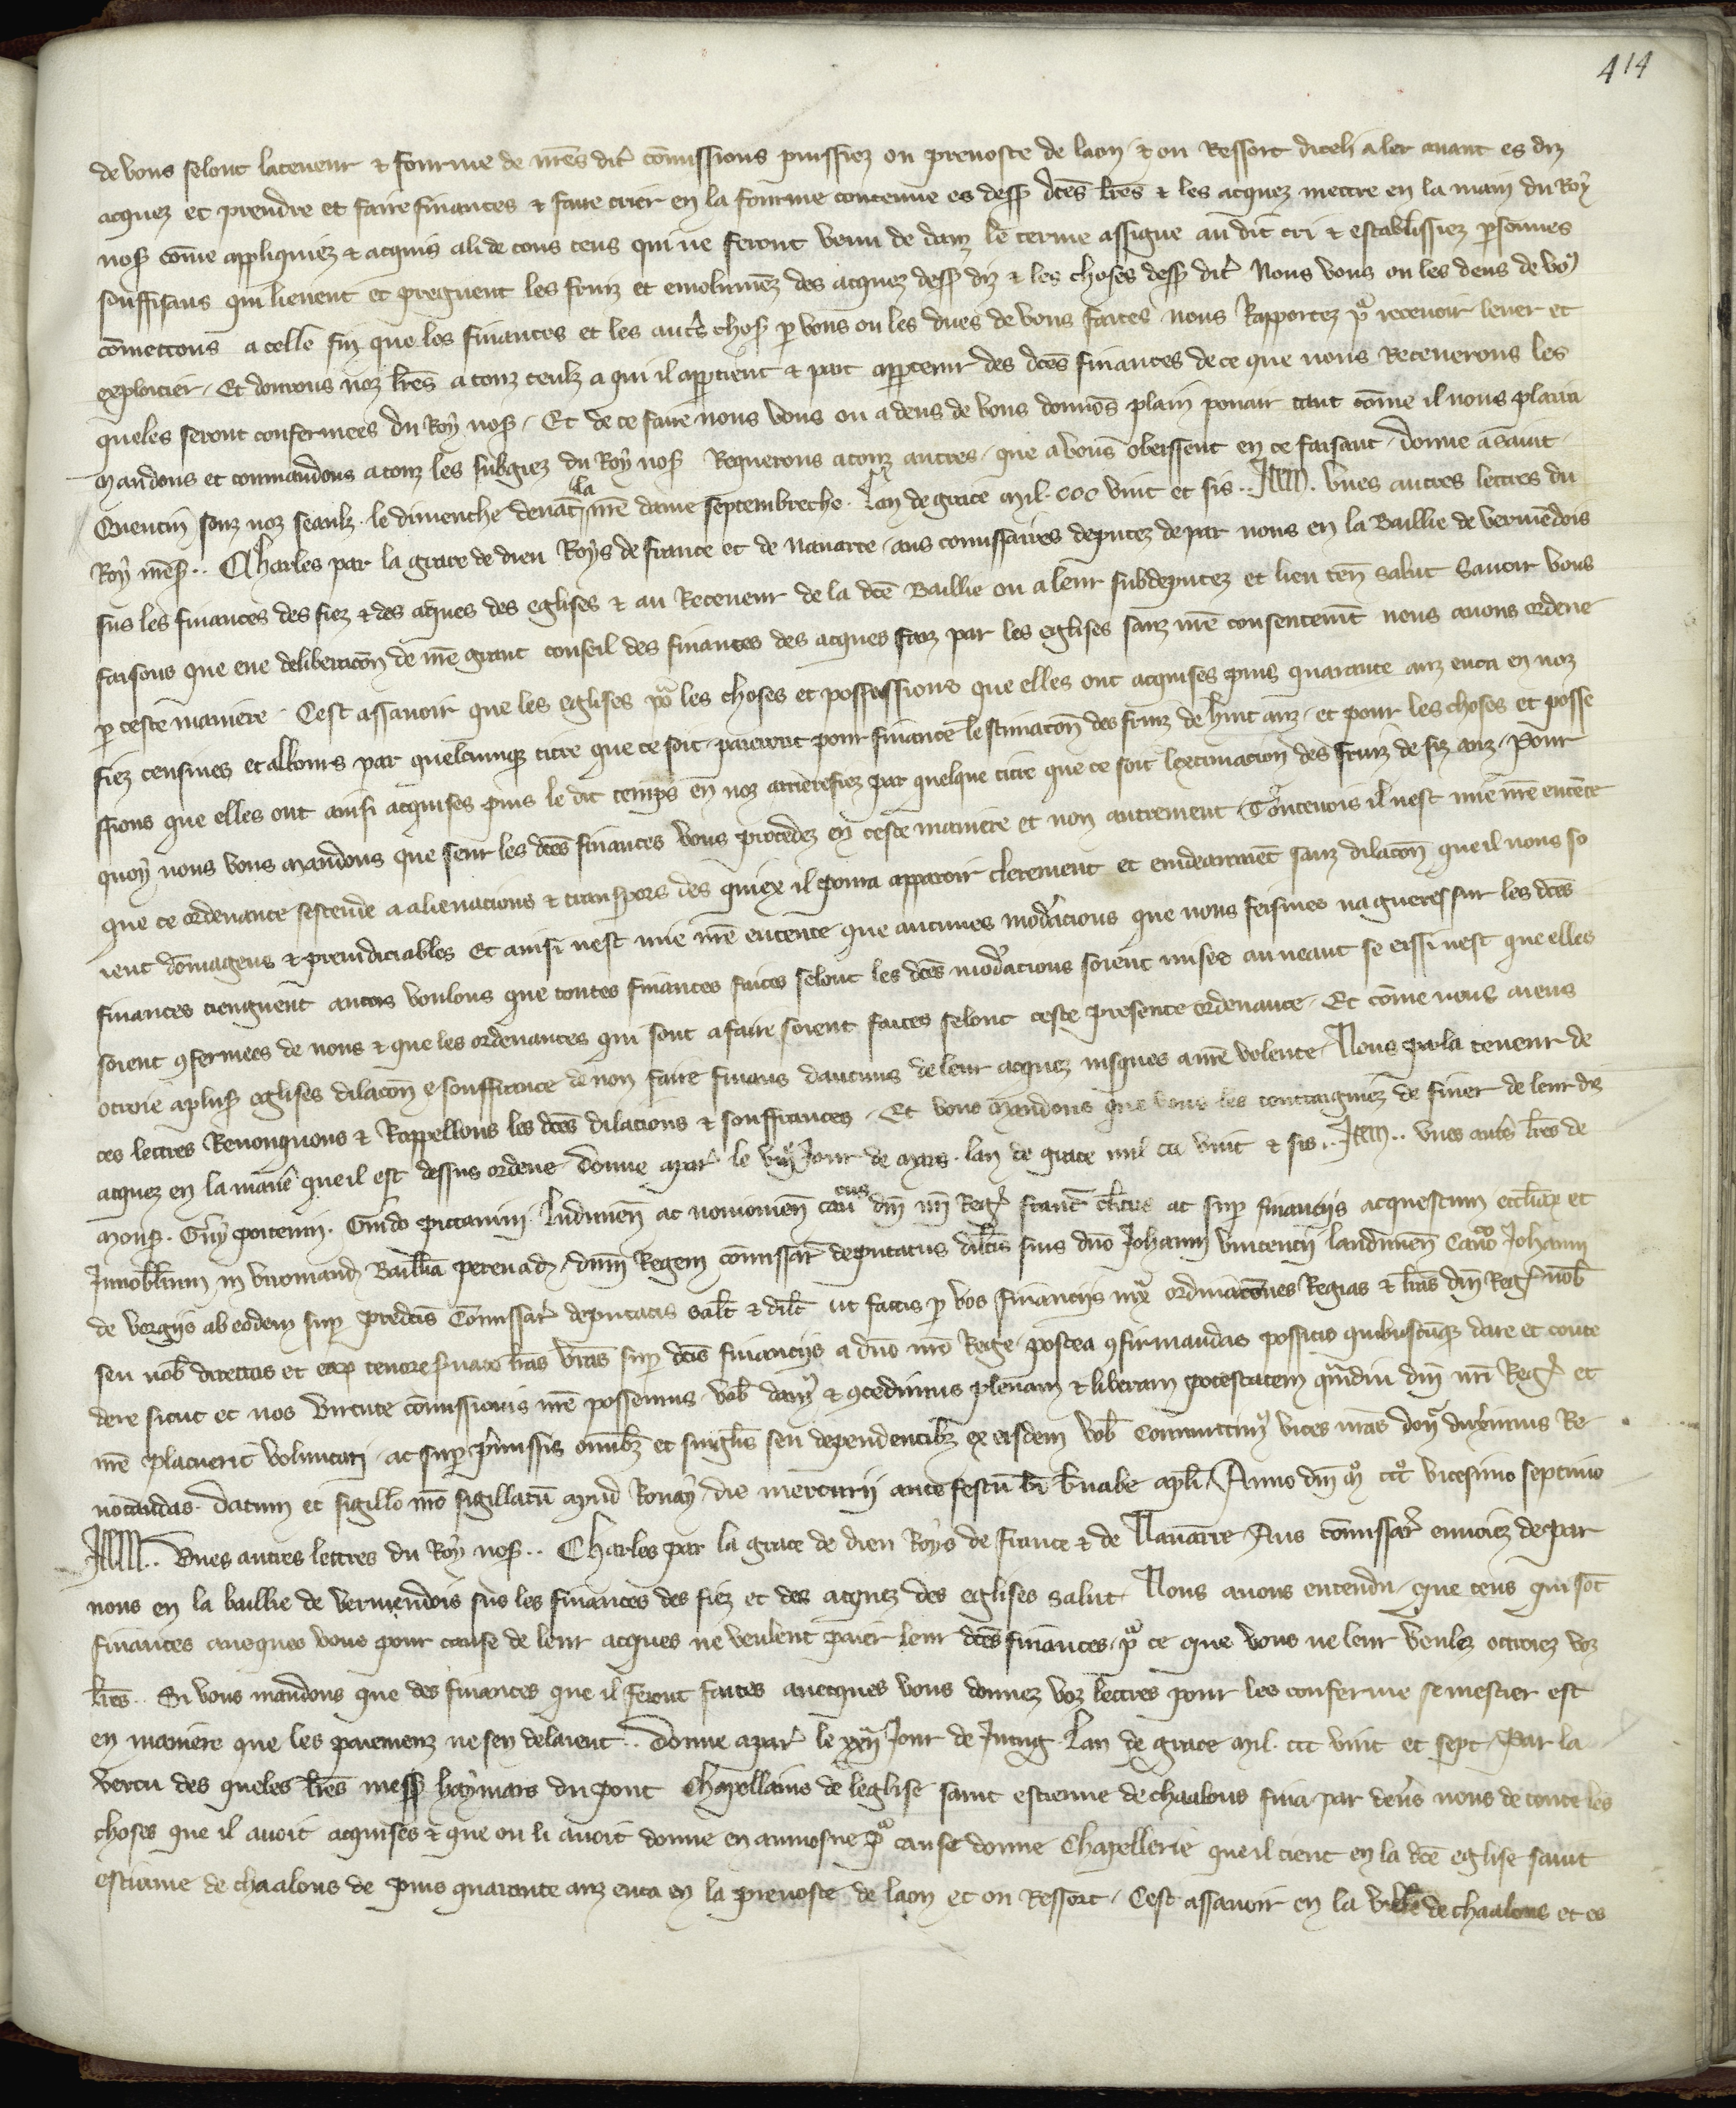 414
de vous selonc la teneur & fourme de nr̃es dit̾ cōmissions puissiez ou prevoste de laon & ou Ressort diceli aler avant es diz
acquez et prendre et faire finances & faire crier en la fourme contenue es dess᷒ dc̃es lr̃es & les acquez mettre en la main du Roy
nos᷒ cōme appliquiez & acquis a li de tous ceus qui ne seront venu dedanz le terme assigne au dit cri & establissiez p̱sonnes
souffisans qui lievent et pregnent les fruiz et emolumēz des acquez dess᷒ diz & les choses dess᷒ dit̾ Nous vous ou les deus de vo᷒
cōmettons a celle fin que les finances et les autr̾s chos᷒ p̱ vous ou les dues de vous faites nous Rapportez po᷒ recevoir lever et
exploitier. Et donrons noz lr̃es a touz ceulz a qui il app̱tient & puit app̱tenir des dc̃es finances de ce que nous Receverons les
queles seront confermees du Roy nos᷒. Et de ce faire nous vous ou a deus de vous donnōs plain pouair tant cōme il nous plaira
Mandons et commandons a touz les subgiez du Roy nos᷒ Requerons a touz autres que a vous obeissent en ce faisant. donne a saint
Quentin souz noz seaulz. le dimenche devāt la nr̃e dame septembreche. Lan de grace Mil. CCC vint et sis.. Item. Unes autres lettres du
Roy nr̃es᷒.. Charles par la grace de dieu Roys de france et de Navarre. aus commissaires deputez de par nous en la Baillie de vermēdois
sus les finances des fiez & des acques des eglises & au Receveur de la dc̃e Baillie ou a leur subdeputez et lieu ten̄ salut Savoir vous
faisons que eue deliberacōn de nr̃e grant conseil des finances des acques faiz par les eglises sanz nr̃e consentemt̄ nous avons ordene
p̱ ceste maniere. Cest assavoir que les eglises po᷒ les choses et possessions que elles ont acquises puis quarante anz enca en noz
fiez censives et alleus par quelcumq᷒ titre que ce soit. paieront pour finance lestimacōn des fruiz de huit anz. et pour les choses et posse
ssions que elles ont ainsi acquises puis le dit temps en noz arrierefiez par quelque titre que ce soit lextimacion des fruiz de siz anz. Pour
quoy nous vous Mandons que seur les dc̃es finances vous procedez en ceste maniere et non autrement. Toutevois il nest mie nr̃e entēte
que ce ordenance sestende a alienacions & transpors des quiex il pourra apparoir clerement et evidenmēt sanz dilacōn que il nous so
ient dōmageus & preiudiciables Et ainsi nest mie nr̃e entente que aucunes mod̾acions que nous feismes na gueres sur les dc̃es
finances tiengnent ancois voulons que toutes finances faites selonc les dc̃es mod̾acions soient mises au neant se eissi nest que elles
soient ꝯfermees de nous & que les ordenances qui sont a faire soient faites selonc ceste presente ordenance. Et cōme nous aiens
otroie a plus᷒ eglises dilacōn & souffrance de non faire finans daucuns de leur acquez iusques a nr̃e volente. Nous par la teneur de
ces lettres Renonquons & Rappellons les dc̃es dilacions & souffrances. Et vous Mandons que vous les contraigniez de finer de leur dis
acquez en la mani̾e que il est dessus ordene. donne a par̾ le Jour de Mars. lan de grace mil CCC vint & sis.. Item.. Unes autr̾s lr̃es de
Mons᷒. Guy poitevin. Guido pictavini. laudunen̄ ac noviomen̄ canonicus dn̄i nr̄i Reg᷒ franc̄ clericus ac sup̱ financiis acquestuum eccl̄iaꝝ et
Innobilium in viromand᷒ Baillia p̱ eund᷒ dnm̄ Regem cōmissar̾ deputatus dil̄cis suis dn̄o Johanni vincencii laudunen̄ Canōco Johanni
de vergiis ab eodem sup̱ p̱dictis Cōmissar̾ deputatis salt̄ & dilc̄t ut factis p̱ vos financiis iuxᵃ ordinacōnes Regias & lr̄as dn̄i Reg᷒ nob̄
seu vob̄ directas et eaꝝ tenore s̱vato lr̄as vr̄as sup̱ dc̄is financiis a dn̄o nr̄o Rege postea ꝯfirmandas possitis quibuscūq᷒ dare et conce
dere sicut et nos virtute cōmissionis nr̄e possemus. vob̄ dam᷒ & ꝯcedimus plenam & liberam potestatem qᵃmdiu dn̄i nr̄i Reg᷒ et
nr̄e placuerit voluntati. ac sup̱ p̱missis omībꝫ et singl̄is seu dependentibꝫ ex eisdem vob̄ Committim᷒ vices nr̄as donᵃ duxerimus Re
vocandas. Datum et sigillo nr̄o sigillatū apud Roniay die mercurii ante festū bī bn̄abe apl̄i. Anno dn̄i Mᵒ CCCᵒ vicesimo septimo
Item.. Unes autres lettres du Roy nos᷒.. Charles par la grace de dieu Roys de france & de Navarre. Aus cōmissar̾ envoiez de par
nous en la baillie de vermendois sus les finances des fiez et des acquez des eglises salut. Nous avons entendu que ceus qui sōt
finances avecques vous pour cause de leur acques ne veulent paier leur dc̃es finances. po᷒ ce que vous ne leur voulez ottroiez voz
lr̃es.. Si vous mandons que des finances que il feront faites avecques vous donnez voz lettres pour les conferme se mestier est
en maniere que les paiemenz ne sen delaient.. Donne a par̾ le Jour de Juing. Lan de grace Mil. CCC vint et sept. Par la
vertu des queles lr̃es mess᷒ haymars du pont Chapellains de leglise saint estienne de chaalons fina par devers nous de toute les
choses que il avoit acquises & que on li avoit donne en aumosne po᷒ cause donne Chapellerie que il tient en la dc̃e eglise saint
estienne de chaalons de puis quarante anz enca en la prevoste de laon et ou Ressort. Cest assavoir en la ville de chaalons et es